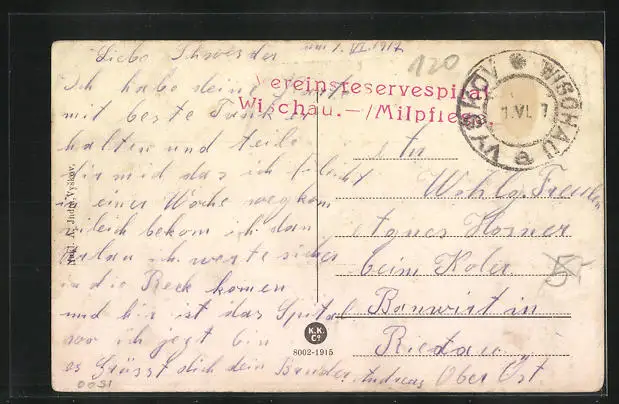 Liebe Schwester am 1. VI. 1917
Ich habe deine Karte
mit beste Dank er
halten und teile
dir mid das ich
in einer Woche wegkom
vileich bekom ich dan
Urlan ich werte sicher
in die Reck komen
und hir ist das Spital
wo ich jezt bin
es Grüsst dich dein Bruder Andreas
Vereinsreservespital
Wischau.—/Milpflege.
VYŠKOV WISCHAU
1. VI. 7
120
An
Wohlg. Freulen
Agnes Horner
beim Koler
Bauwirt in
Riedau
Ober Öst.
5
Nakl. A. Judr. Vyškov.
K.K.
Co
8002-1915
0051